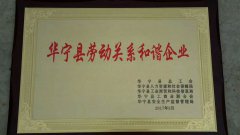 华宁县劳动关系和谐企业
华宁县总工会
华宁县人力资源和社会保障局
华宁县工业商贸和科技信息局
华宁县工商业联合会
华宁县安全生产监督管理局